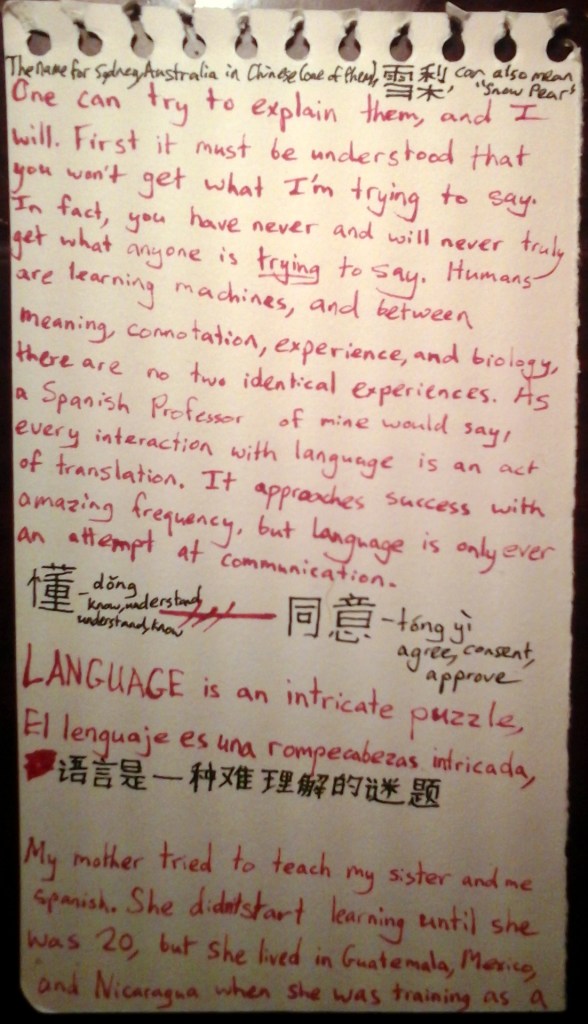 The name for Sydney, Australia in Chinese (one of them), 雪梨 can also mean
"Snow Pear"
One can try to explain them, and I
will. First it must be understood that
you won't get what I'm trying to say.
In fact, you have never and will never truly
get what anyone is trying to say. Humans
are learning machines, and between
meaning, connotation, experience, and biology,
there are no two identical experiences. As
a Spanish Professor of mine would say,
every interaction with language is an act
of translation. It approaches success with
amazing frequency, but language is only ever
an attempt at communication.
懂 - dǒng
know, understand
understand, know
同意 - tóng yì
agree, consent,
approve
LANGUAGE is an intricate puzzle,
El lenguaje es una rompecabezas intricada,
语言是一种难理解的迷题
My mother tried to teach my sister and me
spanish. She didn't start learning until she
was 20, but she lived in Guatemala, Mexico,
and Nicaragua when she was training as a